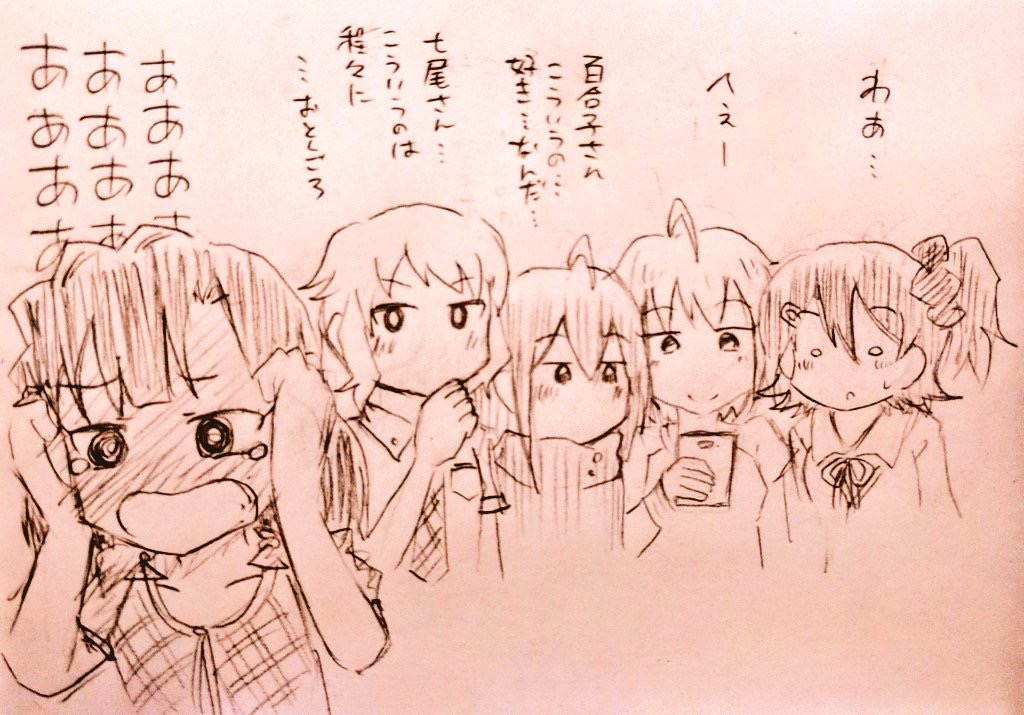 わぁ…
へぇー
百合子さん
こういうの…
好き…なんだ…
七尾さん…
こういうのは
程々に
…おとしごろ
あああさ
ああああ
ああああ